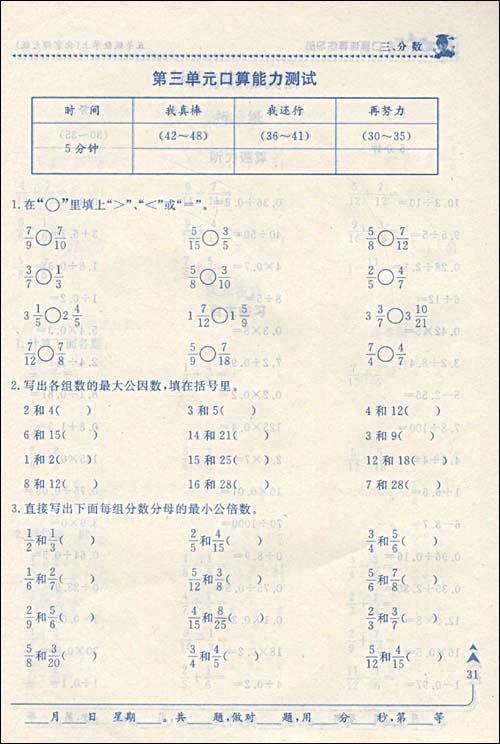 三、分数
第三单元口算能力测试
时间 我真棒 我还行 再努力
5分钟 (42～48) (36～41) (30～35)
1.在“○”里填上“>”、“<”或“=”。
7/9○7/10 5/15○3/5 5/8○7/12
3/7○1/3 5/8○3/10 2/5○4/7
3 1/5○2 4/5 1 7/12○1 5/9 3 3/7○3 10/21
7/12○7/8 5/9○7/18 7/4○4/7
2.写出各组数的最大公因数,填在括号里。
2和4( ) 3和5( ) 4和12( )
6和15( ) 14和21( ) 3和9( )
1和2( ) 15和25( ) 12和18( )
8和12( ) 16和28( ) 7和28( )
3.直接写出下面每组分数分母的最小公倍数。
1/2和1/3( ) 2/5和4/15( ) 3/4和5/6( )
1/6和2/7( ) 5/12和3/8( ) 5/6和7/8( )
2/9和5/6( ) 4/15和8/25( ) 2/3和3/7( )
5/8和3/20( ) 3/4和4/5( ) 5/12和4/15( )
31
____月____日 星期____。共____题,做对____题,用____分____秒,第____等